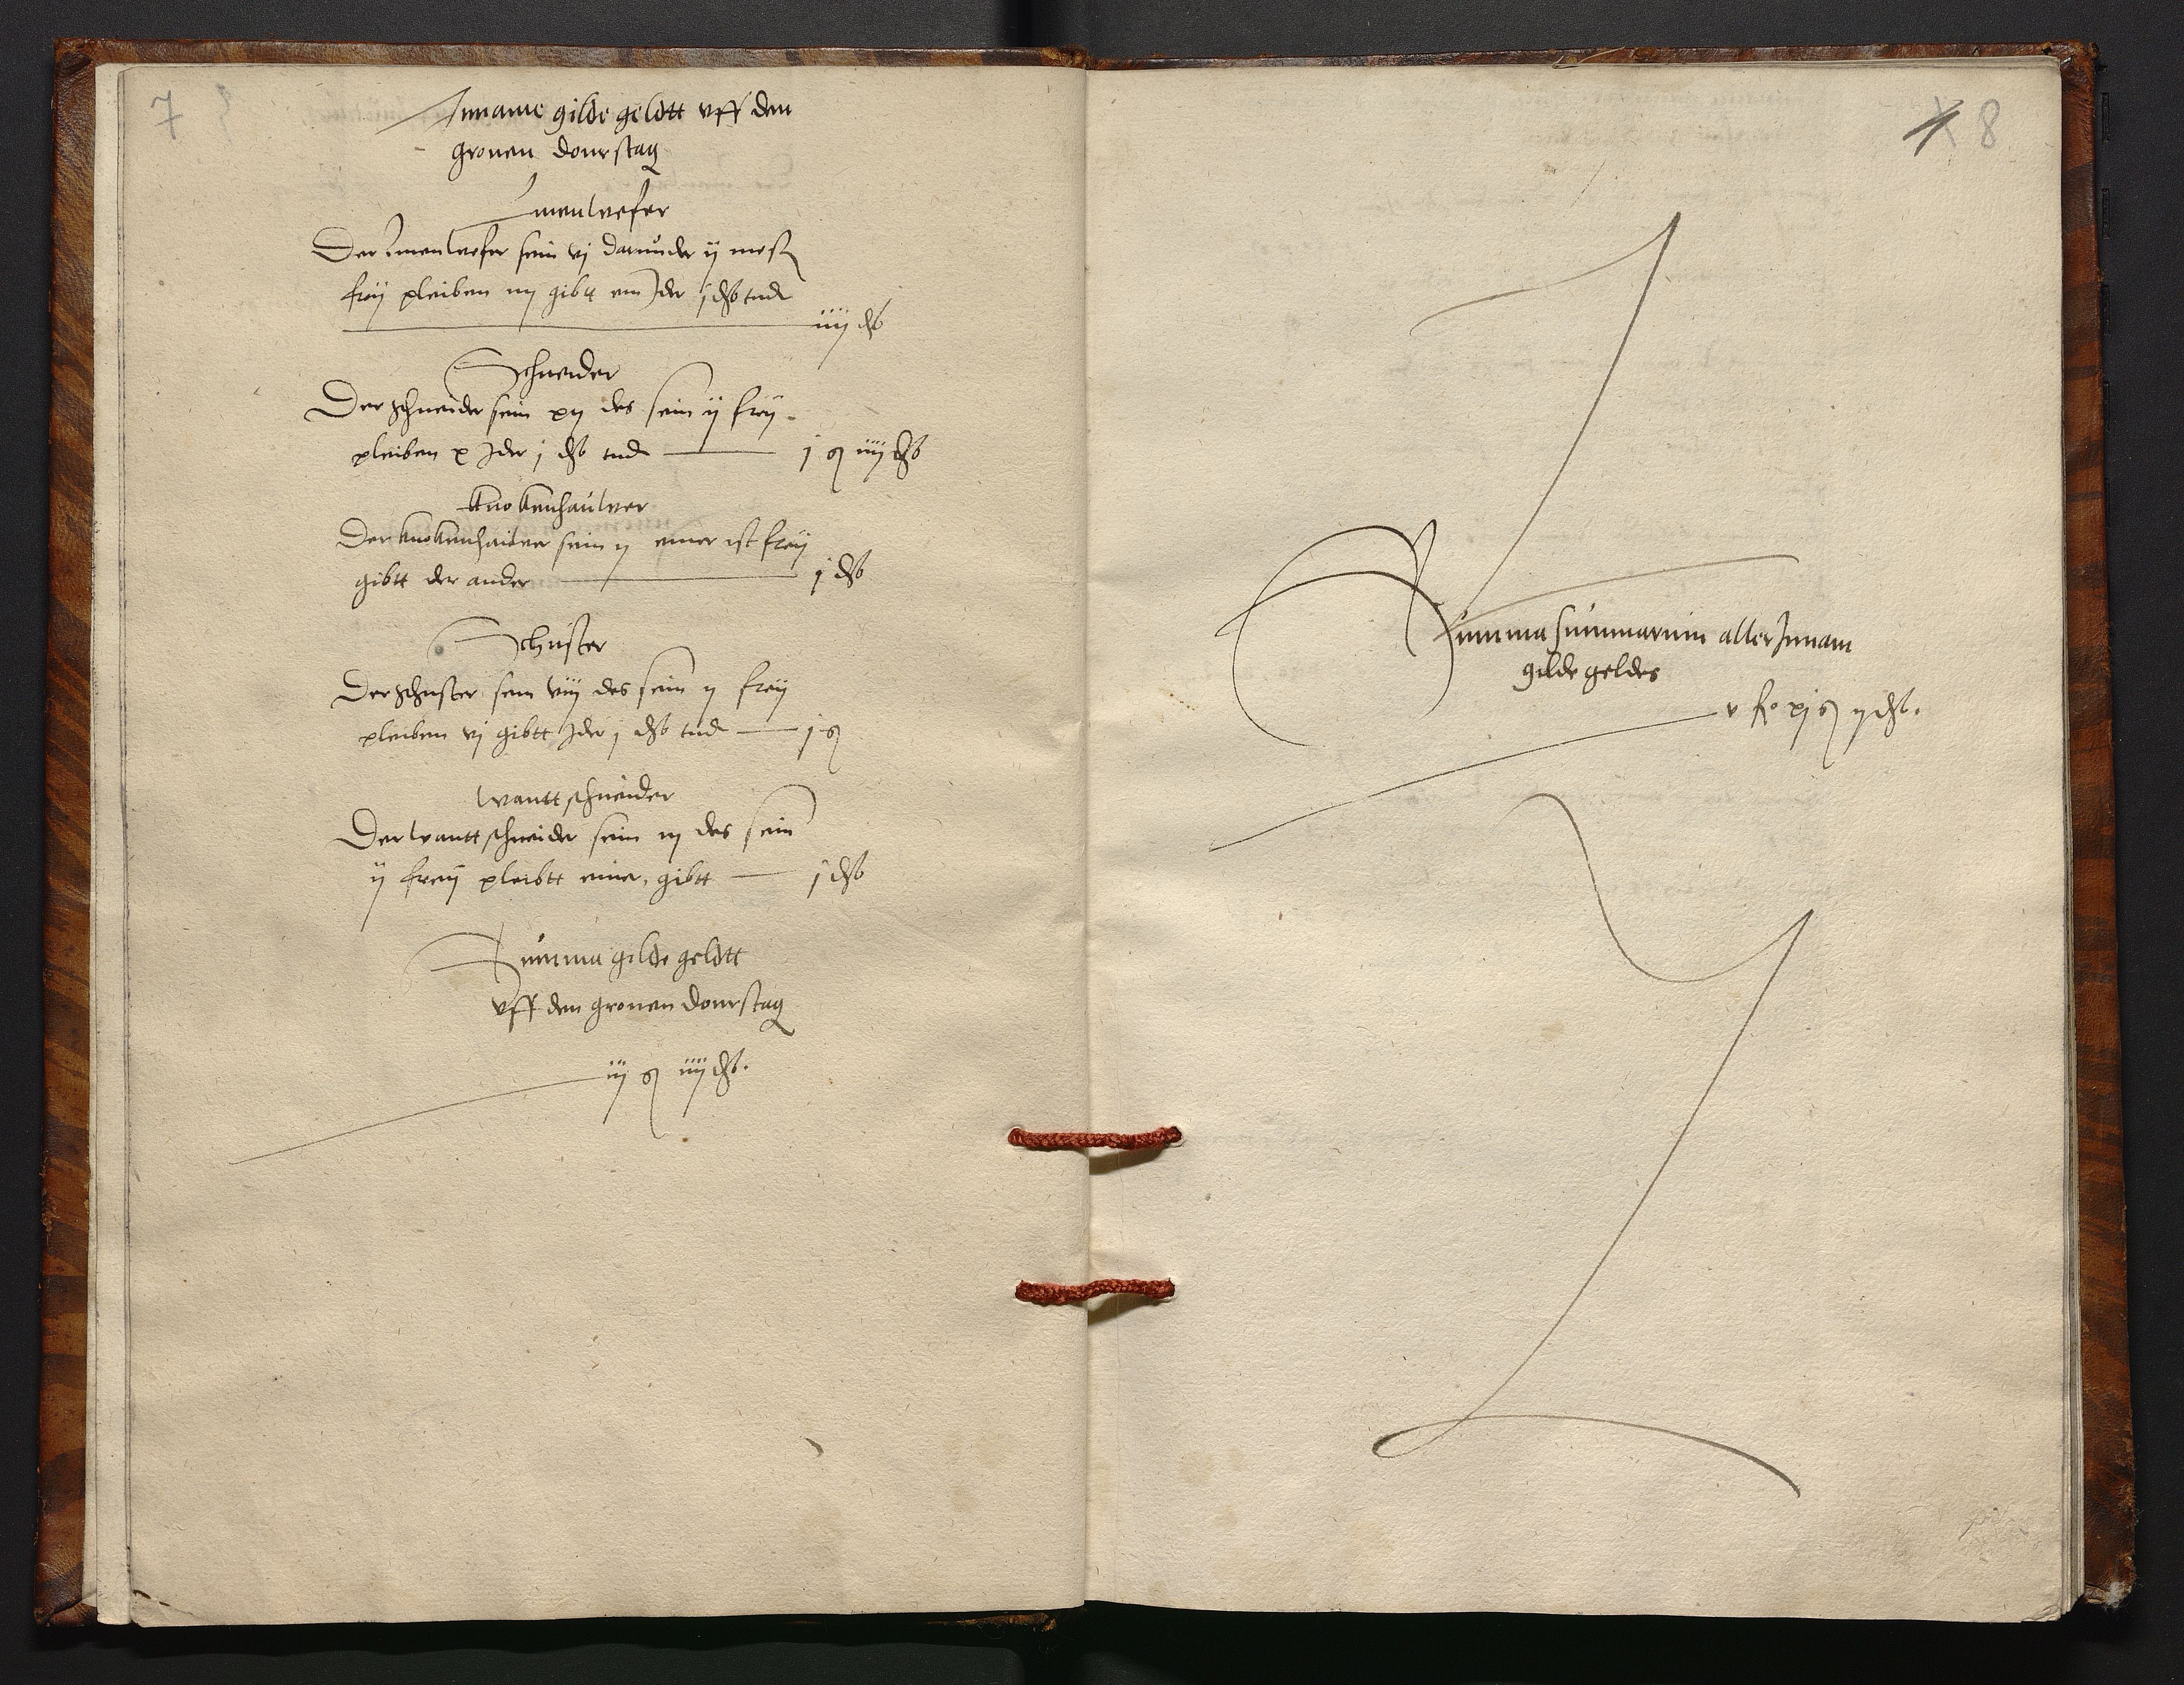 7
Inname gilde geldtt vff den
gronen donrstag
Linenwefer
Der Linenwefer sein vj darunder ij
frey pleiben iiij gibtt ein Jder j
iiij
Schneider
Der schneider sein xij des sein ij frey
pleiben x Jder j
j iiij
knokenhaüwer
Der knokenhaüwer sein ij einer ist frey
gibtt der ander j
Schuster
Der schuster sein viij des sein ij frey
pleiben vj gibtt Jder j
j
wanttschneider
Der wanttschneider sein iij des sein
ij frey pleibtt einer, gibtt j
Summa gilde geldtt
vff den gronen donrstag
iij iiij
8
Summa summarum aller Innam
gilde geldes
v xj ij